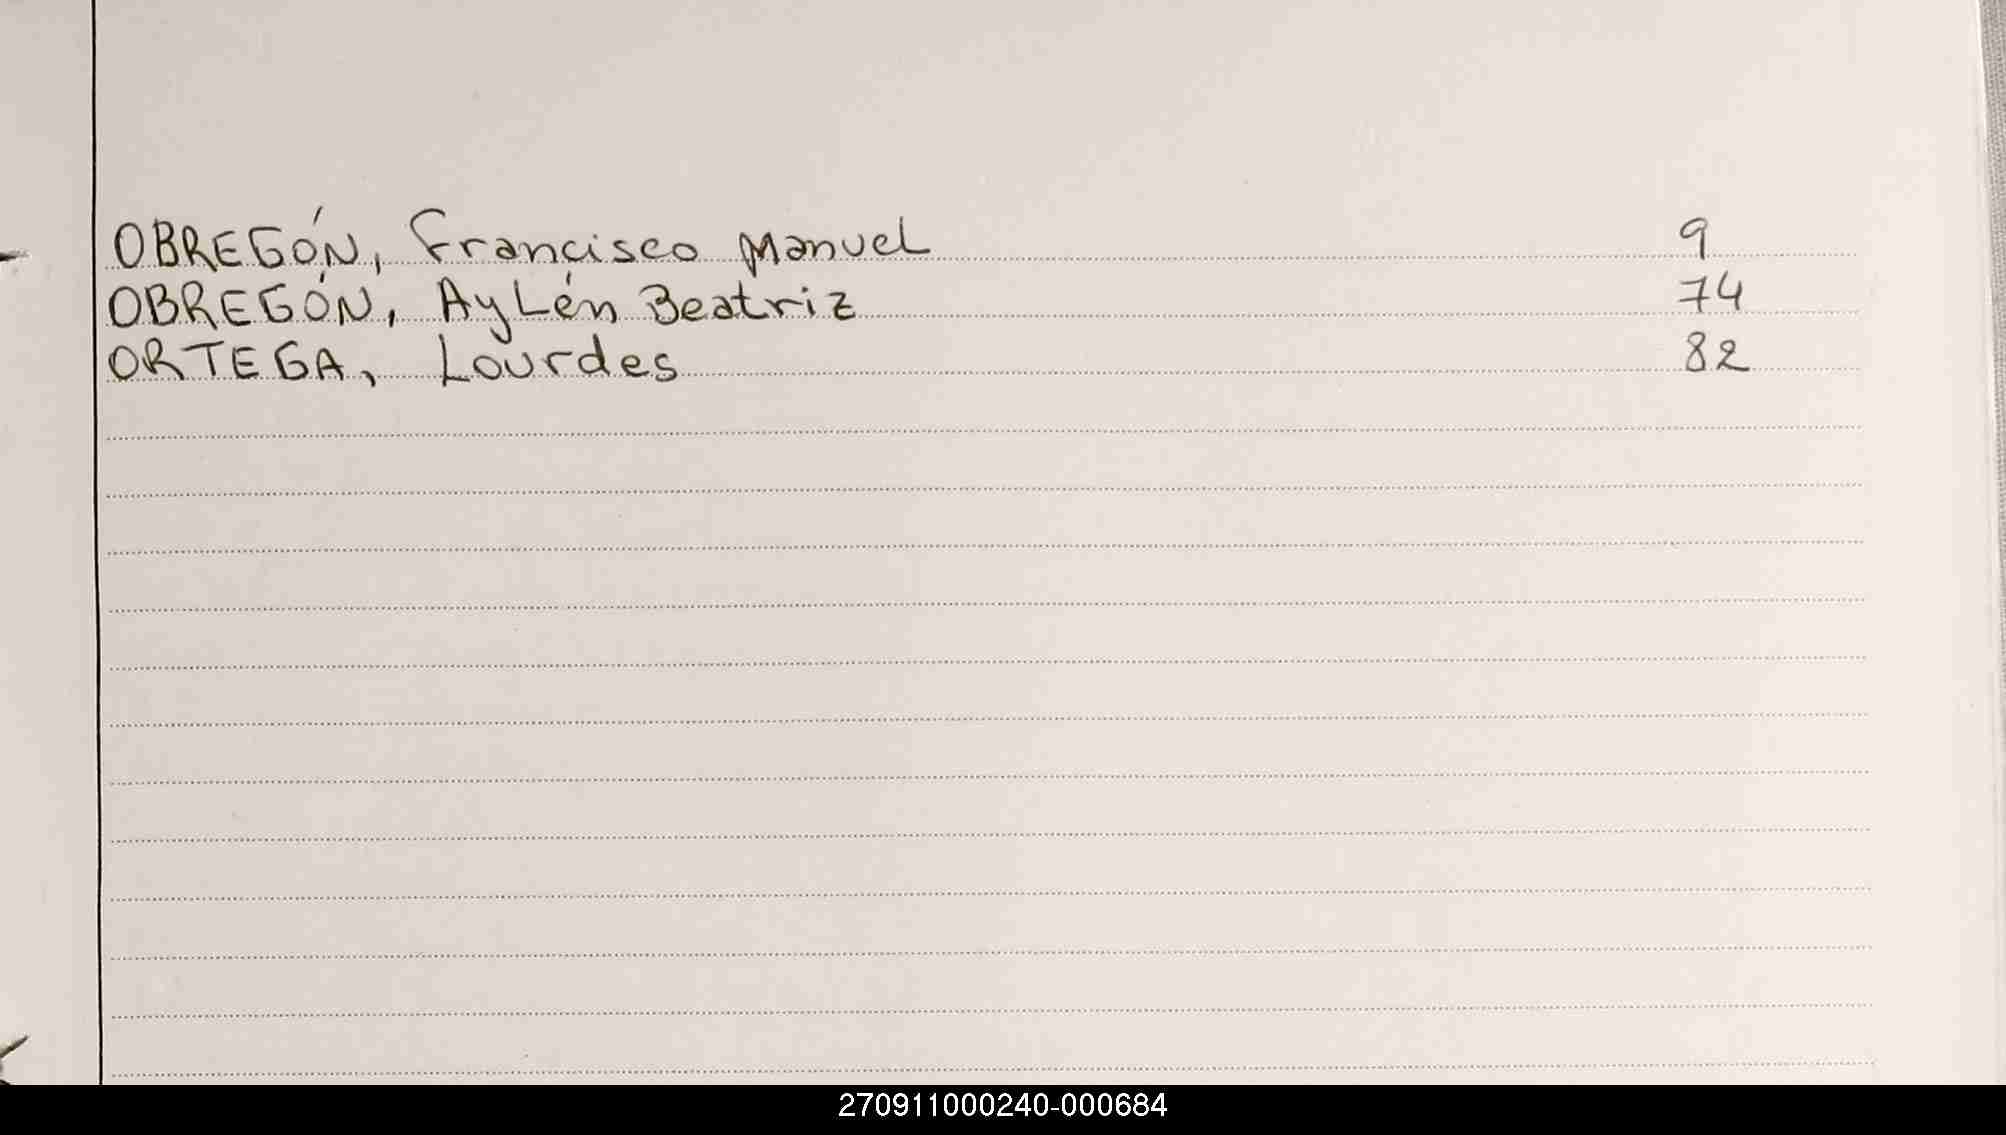 OBREGÓN, Francisco Manuel 9
OBREGÓN, Aylén Beatriz 74
ORTEGA, Lourdes 82
270911000240-000684